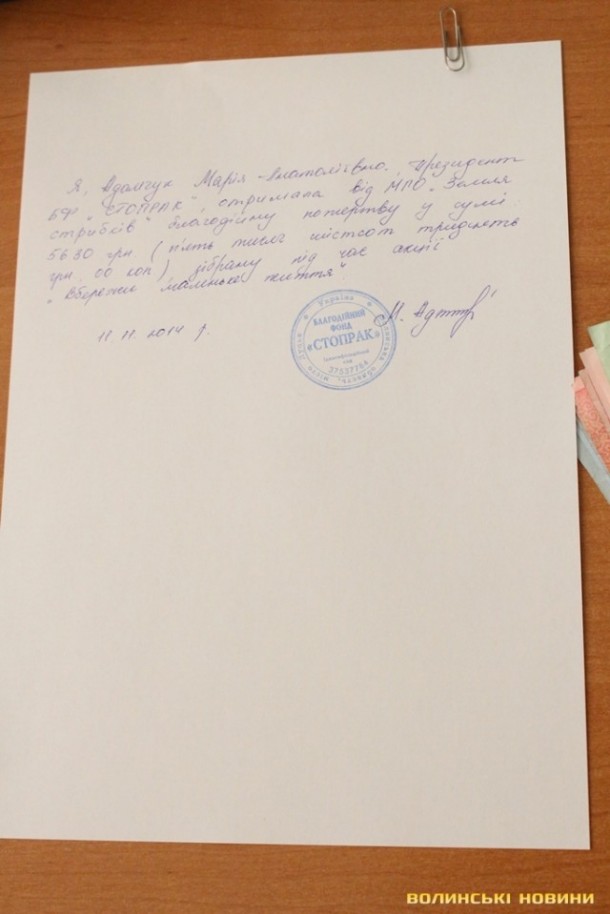 Я, Адамчук Марія Анатоліївна, президент
БФ "СТОПРАК", отримала від МПО "Земля
стрибків" благодійну пожертву у сумі
5630 грн (п'ять тисяч шістсот тридцять
грн. 00 коп.) зібрану під час акції
"Збережи маленьке життя".
11.11.2014 р.
Україна
БЛАГОДІЙНИЙ
ФОНД
«СТОПРАК»
Ідентифікаційний
код
37537254
Волинська область, місто Луцьк
ВОЛИНСЬКІ НОВИНИ